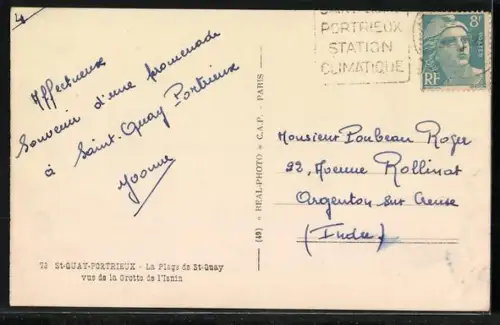 4
SAINT-QUAY
PORTRIEUX
STATION
CLIMATIQUE
8F
RF
Affectueux
Souvenir d'une promenade
à Saint-Quay-Portrieux
Yvonne
Monsieur Poubeau Roger
22, Avenue Rollinat
Argenton sur Creuse
(Indre)
(49) « REAL-PHOTO » C.A.P. - PARIS
73 St-QUAY-PORTRIEUX - La Plage de St-Quay
vue de la Grotte de l'Isnin